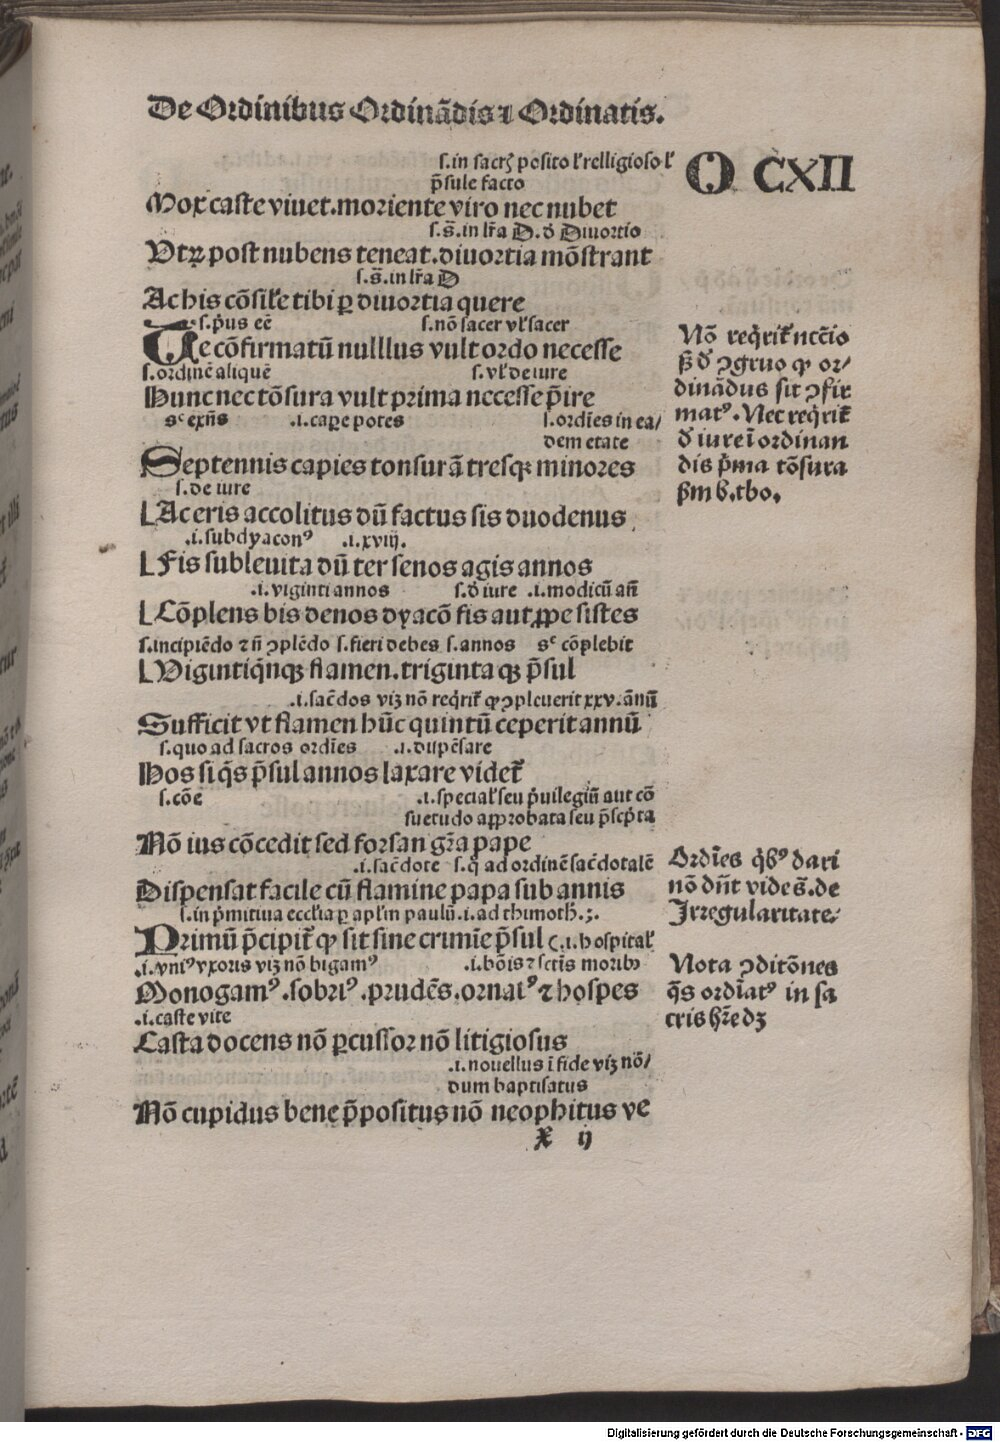 De Ordinibus Ordinãdis ⁊ Ordinatis.
O CXII
s.in sacrꝭ posito ł religioso ł
p̃sule facto
Mox caste viuet.moriente viro nec nubet
s.s̃.in lr̃a D.ď Diuortio
Vtꝝ post nubens teneat.diuortia mõstrant
s.s̃.in lr̃a D
Ac his cõsiłe tibi ꝑ diuortia quere
s.p̃us eẽ s.nõ sacer vł sacer
Te cõfirmatũ nulllus vult ordo necesse
s.ordinẽ aliquẽ s.vł de iure
Hunc nec tõsura vult prima necesse p̃ire
sᶜ exñs .i.caꝑe potes s.ordĩes in ea/
dem etate
Septennis capies tonsurã tresqꝫ minores
s.de iure
Ac eris accolitus dũ factus sis duodenus
.i.subdyaconꝰ .i.xviij.
Fis subleuita dũ ter senos agis annos
.i.viginti annos s.ď iure .i.modicũ añ
Cõplens bis denos dyacõ fis aut ꝓpe sistes
s.incipiẽdo ⁊ ñ ꝯplẽdo s.fieri debes s.annos sᶜ cõplebit
Vigintiqĩnqꝫ flamen.triginta qꝫ p̃sul
.i.sac̃dos viꝫ nõ req̃rit̃ ꝙ ꝯpleuerit xxv.ãnũ
Sufficit vt flamen hũc quintũ ceperit annũ
s.quo ad sacros ordĩes .i.dispẽsare
Hos si q̃s p̃sul annos laxare videt̃
s.cõe .i.speciał seu p̃uilegiũ aut cõ
suetudo aꝓprobata seu p̃scp̃ta
Nõ ius cõcedit sed forsan gr̃a pape
.i.sac̃dote s.q̃ ad ordinẽ sac̃dotalẽ
Dispensat facile cũ flamine papa sub annis
s.in p̃mitiua eccłia ꝑ apłm paulũ.i.ad thimoth̃.3.
Primũ p̃cipit̃ ꝙ sit sine crimĩe p̃sul
.i.hospitał
.i.vniꝰ vxoris viꝫ nõ bigamꝰ .i.bõis ⁊ sctĩs moribꝫ
Monogamꝰ.sobriꝰ.prudẽs.ornatꝰ ⁊ hospes
.i.caste vite
Casta docens nõ ꝑcussor nõ litigiosus
.i.nouellus ĩ fide viꝫ nõ/
dum baptisatus
Nõ cupidus bene p̃positus nõ neophitus ve
X ij
Nõ req̃rit̃ nec̃io
ꝯgruo ꝙ or/
dinãdus sit ꝯfir
matꝰ.Nec req̃rit̃
ď iure ĩ ordinan
dis p̃ma tõsura
Ordĩes q̃bꝰ dari
nõ dñt vide s̃.de
Irregularitate/
Nota ꝯditõnes
q̃s ordĩatꝰ in sa
cris hr̃e dꝫ
Digitalisierung gefördert durch die Deutsche Forschungsgemeinschaft - DFG